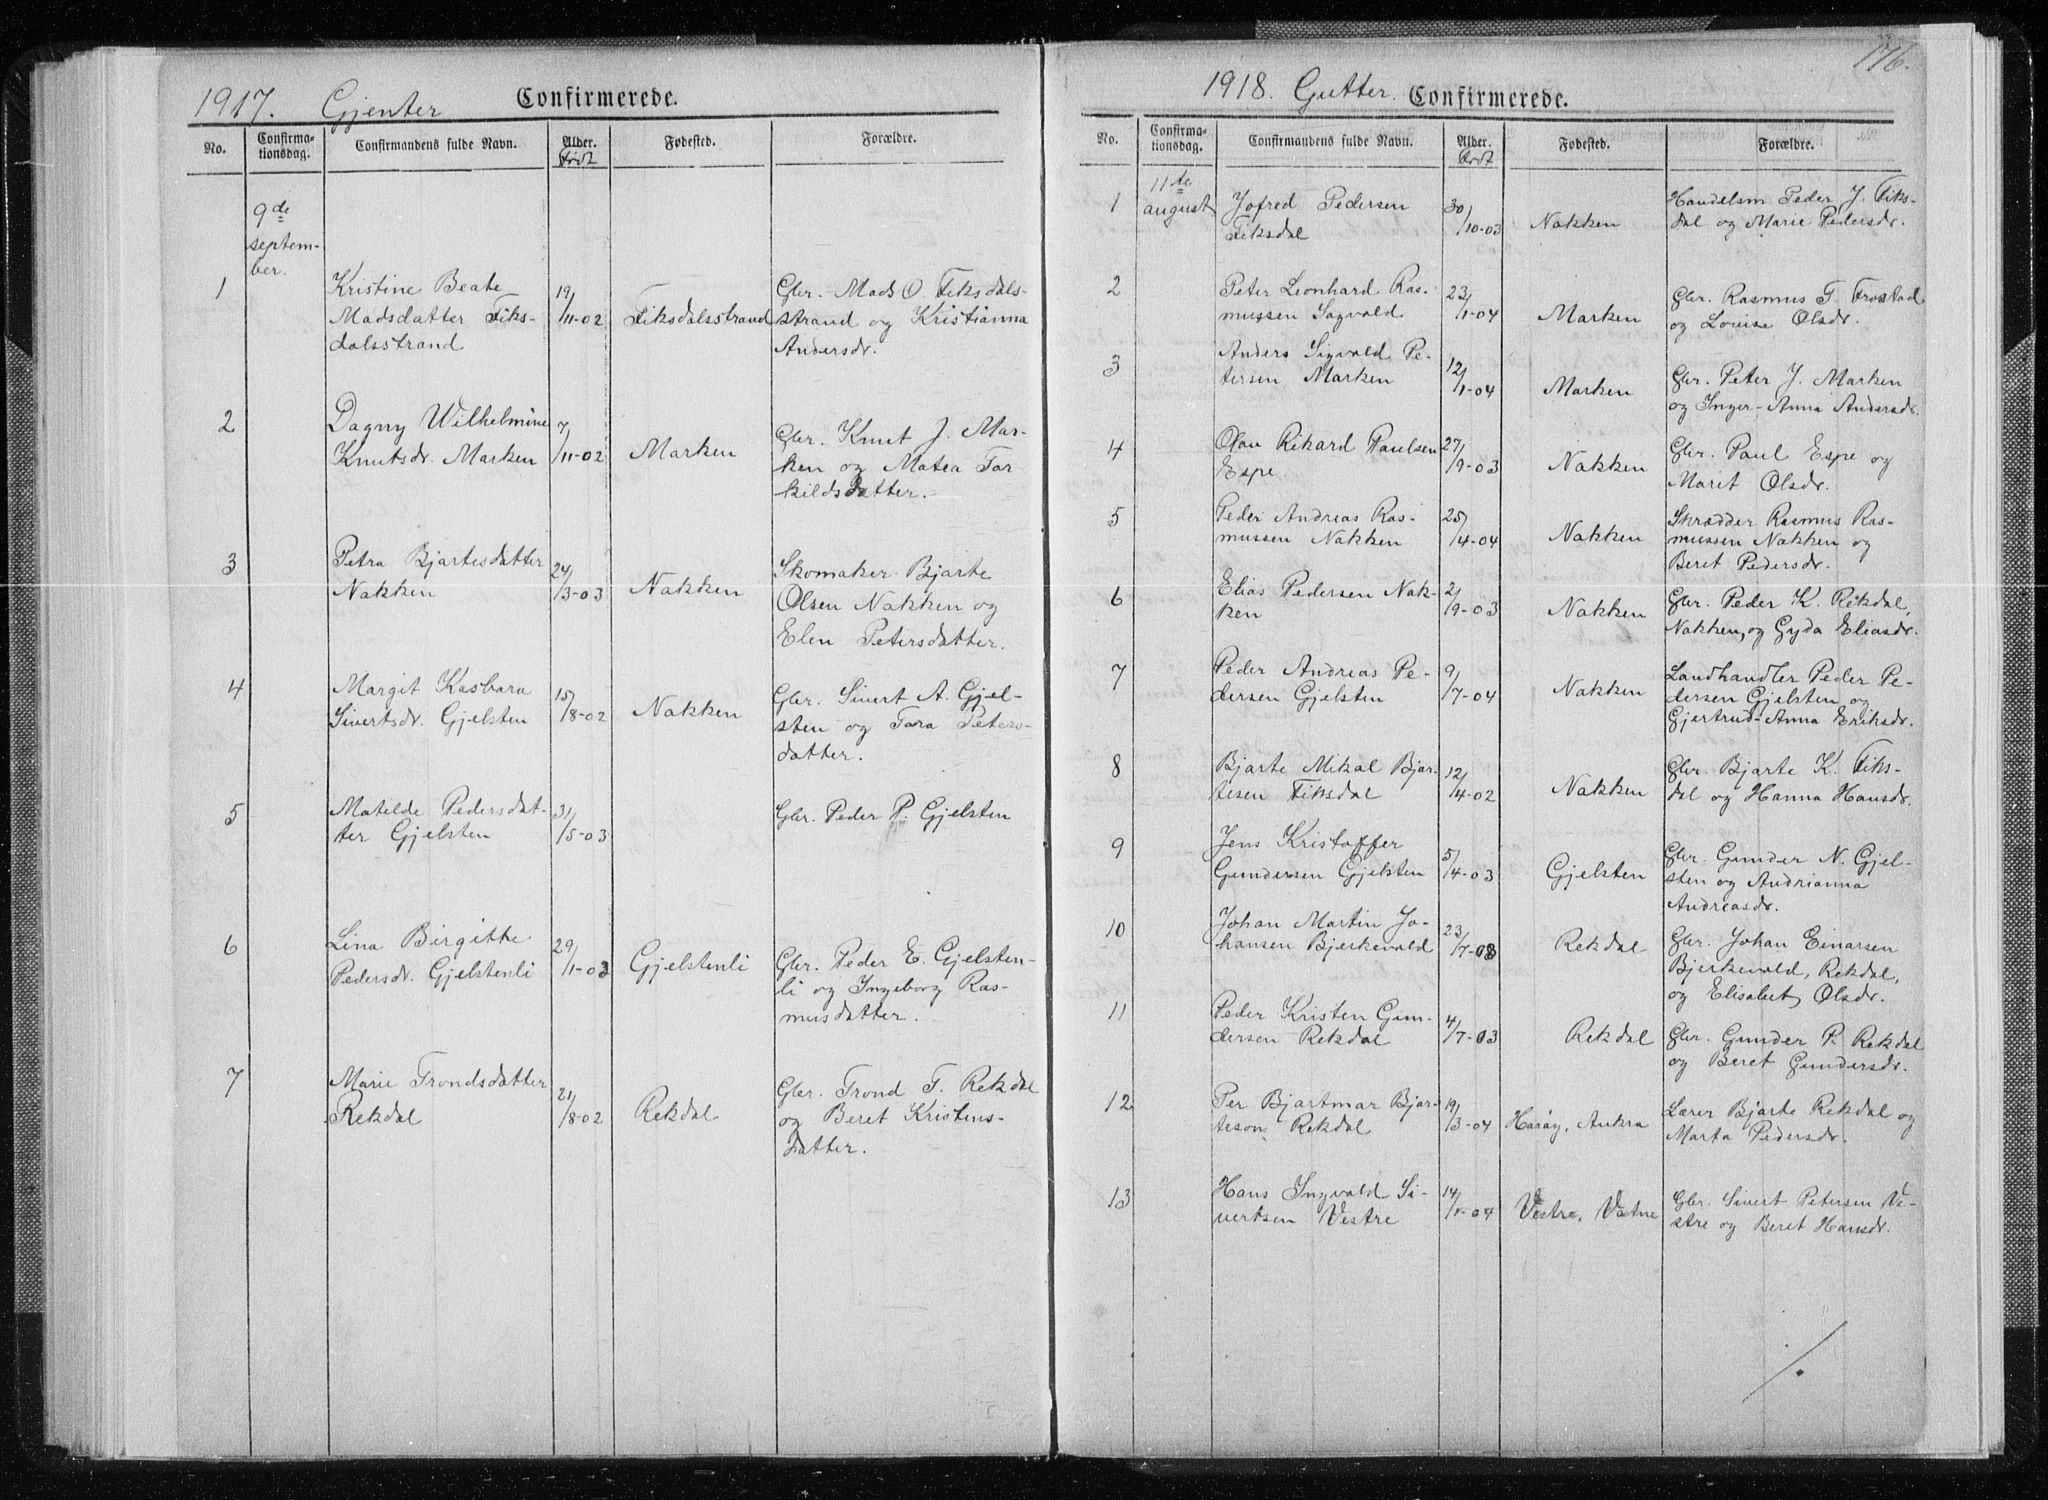 1917. Gjenter Confirmerede.
No. Confirma-tionsdag. Confirmandens fulde Navn. Alder. Født Fødested. Forældre.
9de
septem-
ber.
1 Kristine Beate 19/11-02 Fiksdalsstrand Gbr. Mads O. Fiksdals-
Madsdatter Fiks- strand og Kristianna
dalsstrand Andersdr.
2 Dagny Wilhelmine 7/11-02 Marken Gbr. Knut J. Mar-
Knutsdr. Marken ken og Matea Tor
kildsdatter.
3 Petra Bjartesdatter 24/3-03 Nakken Skomaker Bjarte
Nakken Olsen Nakken og
Elen Petersdatter.
4 Margit Kasbara 15/8-02 Nakken Gbr. Sivert A. Gjel-
Sivertsdr. Gjelsten sten og Tara Peters-
datter.
5 Matilde Pedersdat- 31/5-03 Gbr. Peder P. Gjelsten
ter Gjelsten
6 Lina Birgitte 29/1-03 Gjelstenli Gbr. Peder E. Gjelsten-
Pedersdr. Gjelstenli li og Ingeborg Ras-
musdatter.
7 Marie Trondsdatter 21/8-02 Rekdal Gbr. Trond T. Rekdal
Rekdal og Beret Kristens-
datter.
176.
1918. Gutter. Confirmerede.
No. Confirma-tionsdag. Confirmandens fulde Navn. Alder. Født Fødested. Forældre.
11te
august
1 Jofred Pedersen 30/10-03 Nakken Handelsm Peder J. Fiks-
Fiksdal dal og Marie Pedersdr.
2 Peter Leonhard Ras- 23/1-04 Marken Gbr. Rasmus T. Frostad
mussen Sagvald og Louise Olsdr.
3 Anders Sigvald Pe- 12/1-04 Marken Gbr. Peter J. Marken
tersen Marken og Inger-Anna Andersdr.
4 Olav Rikard Paulsen 27/9-03 Nakken Gbr. Paul Espe og
Espe. Marit Olsdr.
5 Peder Andreas Ras- 25/4-04 Nakken Skrædder Rasmus Ras-
mussen Nakken mussen Nakken og
Beret Pedersdr.
6 Elias Pedersen Nak- 2/9-03 Nakken Gbr. Peder K. Rekdal,
ken Nakken, og Gyda Eliasdr.
7 Peder Andreas Pe- 9/7-04 Nakken Landhandler Peder Pe-
dersen Gjelsten dersen Gjelsten og
Gjertrud-Anna Eriksdr.
8 Bjarte Mikal Bjar- 12/4-02 Nakken Gbr. Bjarte K. Fiks-
tesen Fiksdal dal og Hanna Hansdr.
9 Jens Kristoffer 5/4-03 Gjelsten Gbr. Gunder N. Gjel-
Gundersen Gjelsten sten og Andrianna
Andreasdr.
10 Johan Martin Jo- 23/7-03 Rekdal Gbr. Johan Einarsen
hansen Bjerkevold Bjerkevold, Rekdal,
og Elisabet Olsdr.
11 Peder Kristen Gun- 4/7-03 Rekdal Gbr. Gunder P. Rekdal
dersen Rekdal og Beret Gundersdr.
12 Per Bjartmar Bjar- 19/3-04 Harøy, Aukra Lærer Bjarte Rekdal og
teson Rekdal Marta Pedersdr.
13 Hans Ingvald Si- 14/1-04 Vestre, Vatne Gbr. Sivert Petersen Ve-
vertsen Vestre stre og Beret Hansdr.